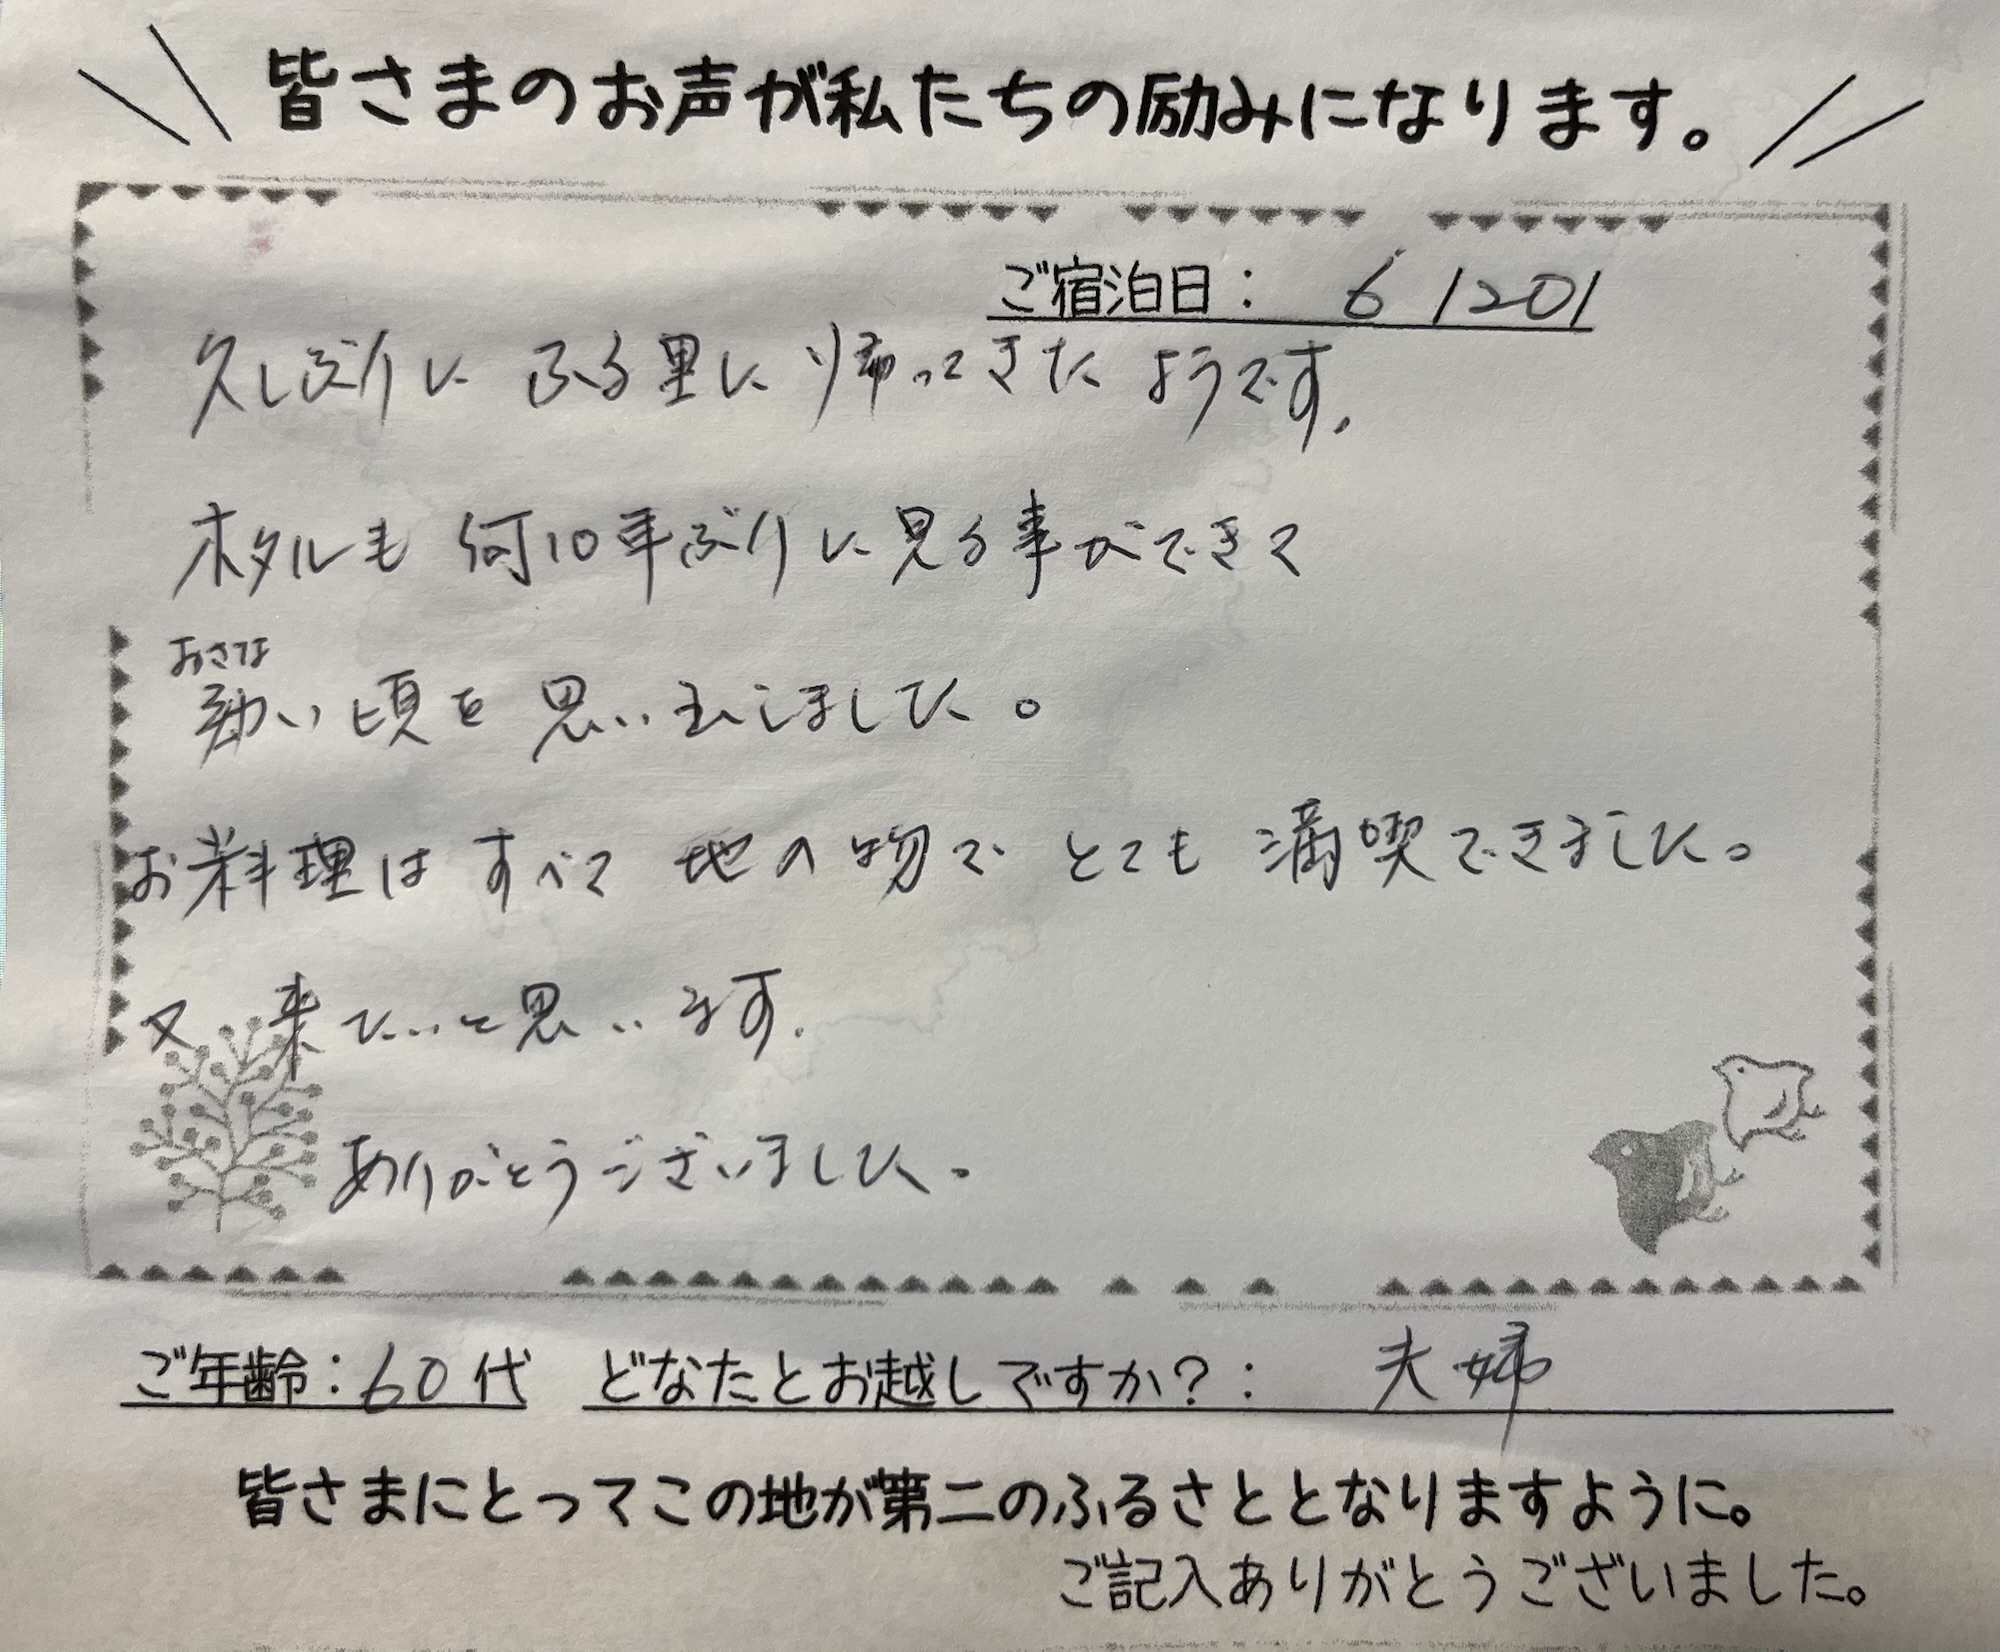 皆さまのお声が私たちの励みになります。
ご宿泊日： 6/20
久しぶりに ふる里に 帰ってきた ようです.
ホタルも 何10年ぶりに 見る事ができて
おさな
幼い頃を 思い出しました。
お料理は すべて 地の物で とても 満喫できました。
又 来たいと思います.
ありがとうございました。
ご年齢：60代 どなたとお越しですか？： 夫婦
皆さまにとってこの地が第二のふるさととなりますように。
ご記入ありがとうございました。